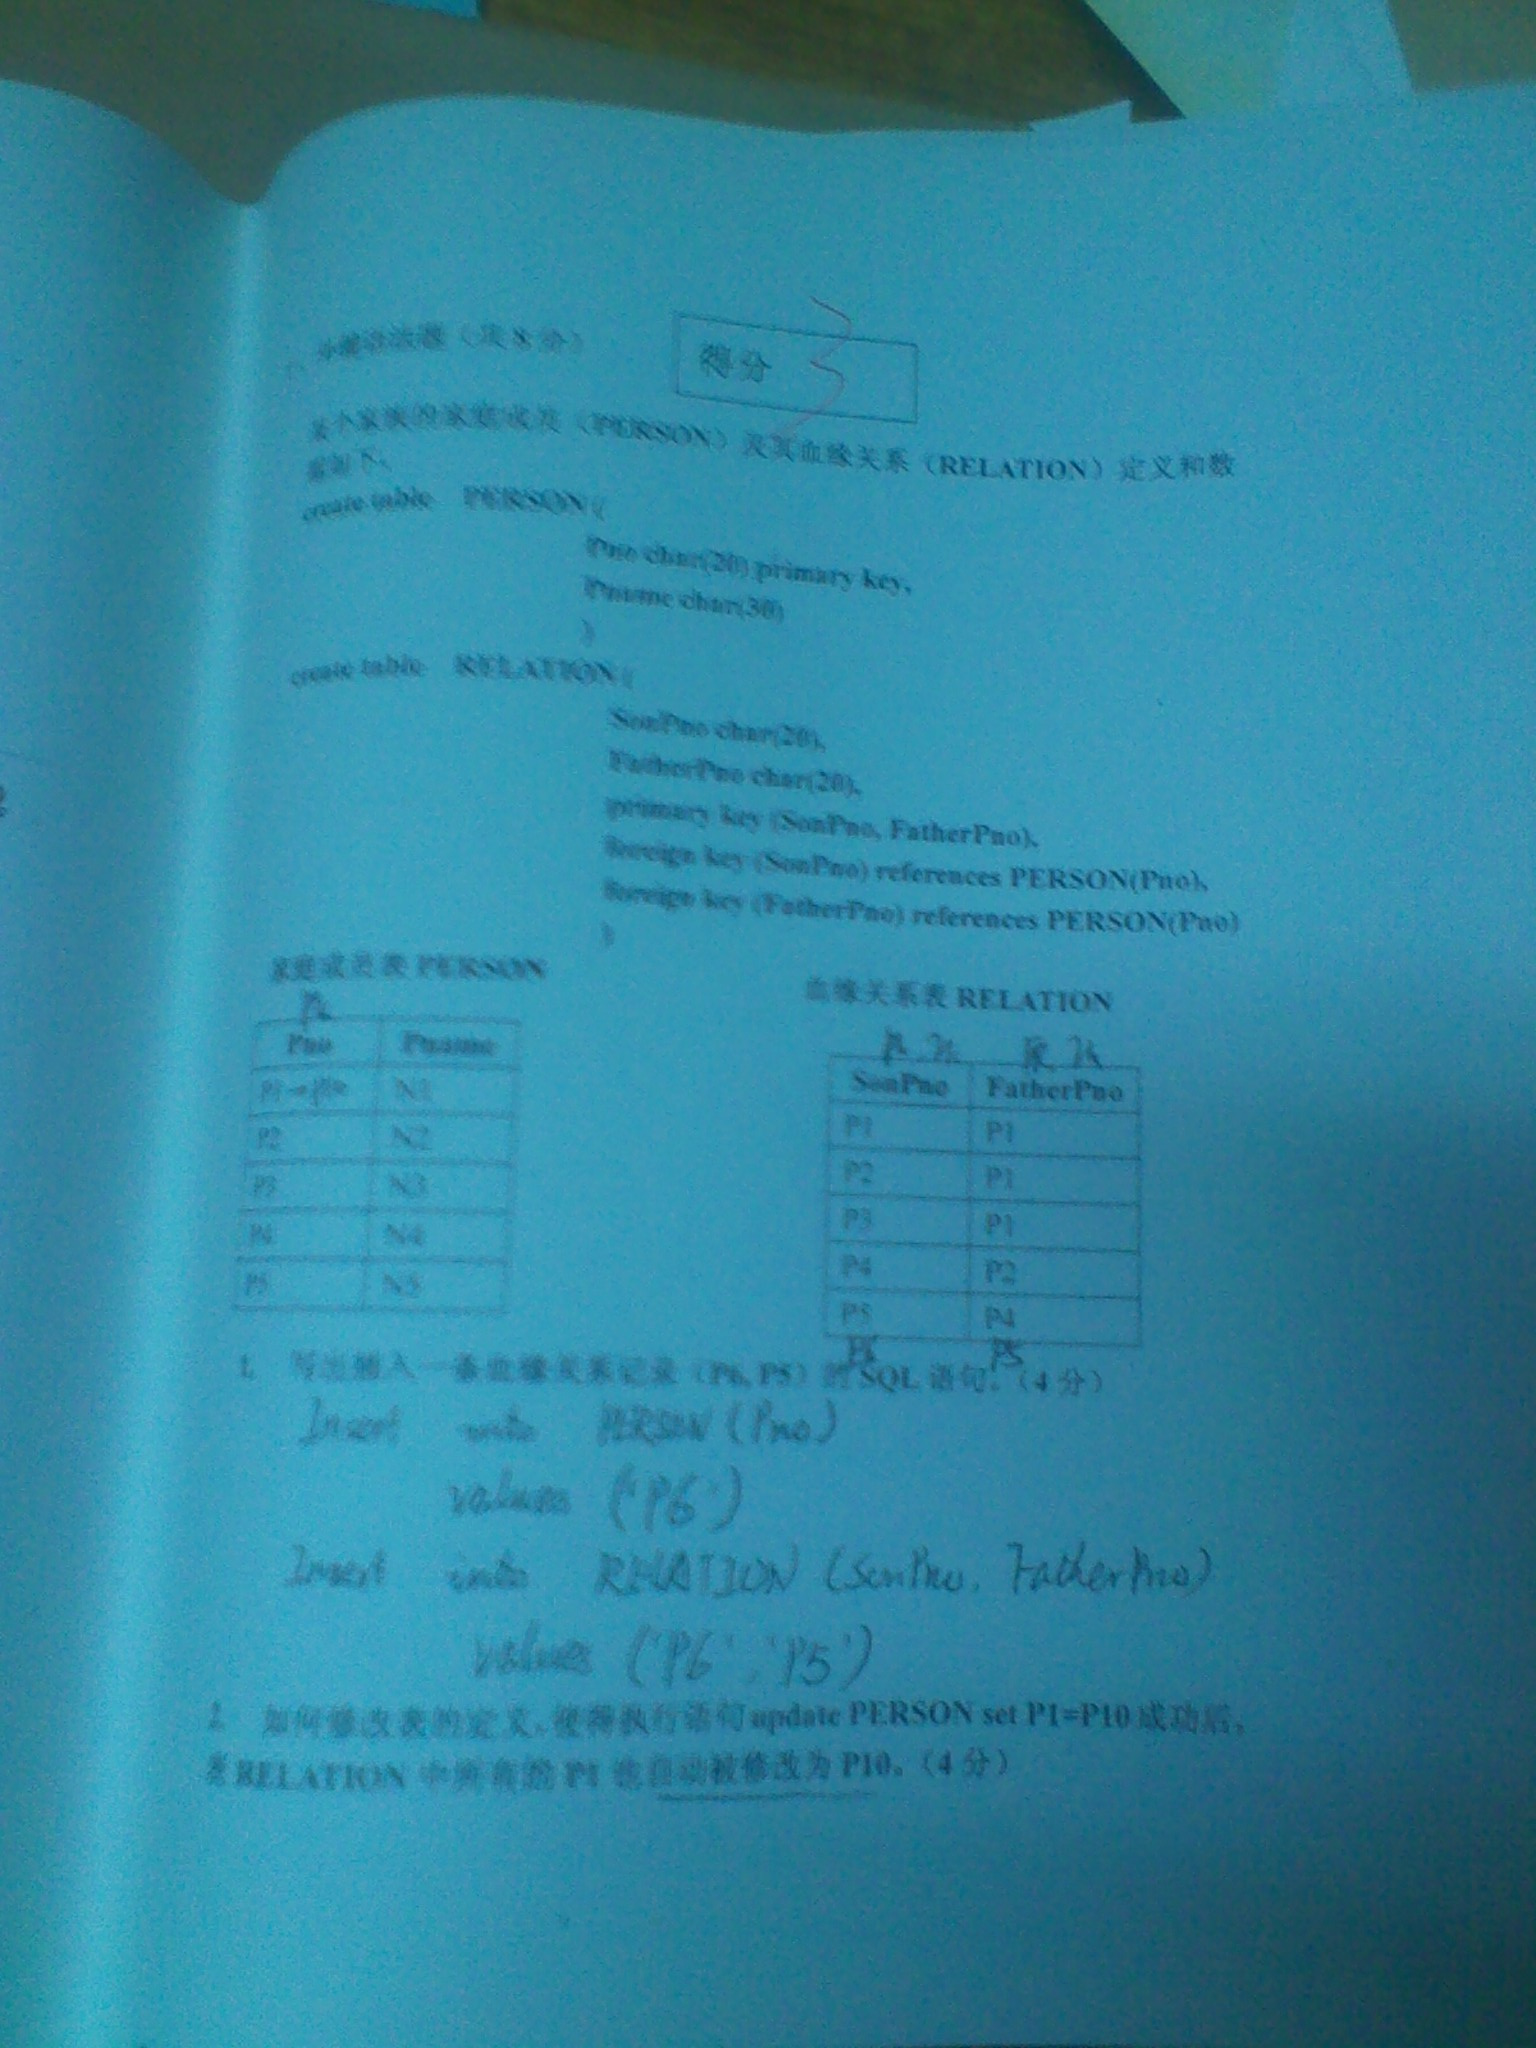 (共 8 分)
得分
某个家族的家庭成员（PERSON）及其血缘关系（RELATION）定义和数
据如下。
create table PERSON (
Pno char(20) primary key,
Pname char(30)
)
create table RELATION (
SonPno char(20),
FatherPno char(20),
primary key (SonPno, FatherPno),
foreign key (SonPno) references PERSON(Pno),
foreign key (FatherPno) references PERSON(Pno)
)
家庭成员表 PERSON
血缘关系表 RELATION
Pno Pname
P1 N1
P2 N2
P3 N3
P4 N4
P5 N5
SonPno FatherPno
P1 P1
P2 P1
P3 P1
P4 P2
P5 P4
P6 P5
1. 写出插入一条血缘关系记录（P6, P5）的 SQL 语句。（4 分）
Insert into PERSON (Pno)
values ('P6')
Insert into RELATION (SonPno, FatherPno)
values ('P6', 'P5')
2. 如何修改表的定义，使得执行语句 update PERSON set P1=P10 成功后，
表 RELATION 中所有的 P1 也自动被修改为 P10。（4 分）